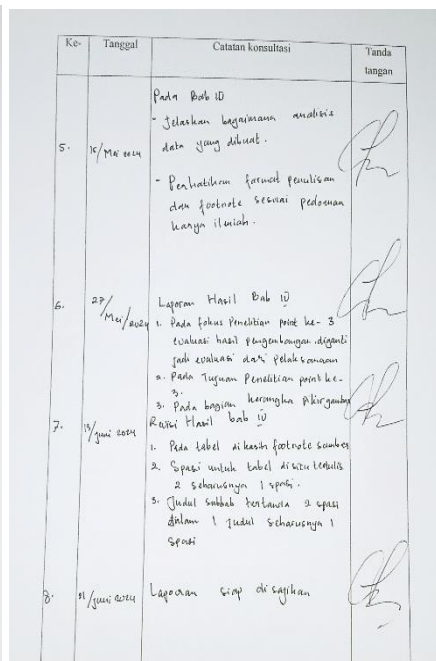 Ke- Tanggal Catatan konsultasi Tanda
tangan
Pada Bab
- Jelaskan bagaimana analisis
5. 15/Mei 2024 data yang dibuat.
- Perhatikan format penulisan
dan footnote sesuai pedoman
karya ilmiah.
6. 27/Mei/2024 Laporan Hasil Bab IV
1. Pada fokus Penelitian point ke- 3
evaluasi hasil pengembangan diganti
jadi evaluasi dari pelaksanaan
2. Pada Tujuan Penelitian point ke-
3.
3. Pada bagian kerangka pikir gambar
7. 13/Juni 2024 Revisi Hasil bab IV
1. Pada tabel di kasih footnote sumber
2. Spasi untuk tabel di situ tertulis
2 seharusnya 1 spasi.
3. Judul subbab 2 spasi
dalam 1 judul seharusnya 1
spasi
8. 21/Juni 2024 Laporan siap di sajikan